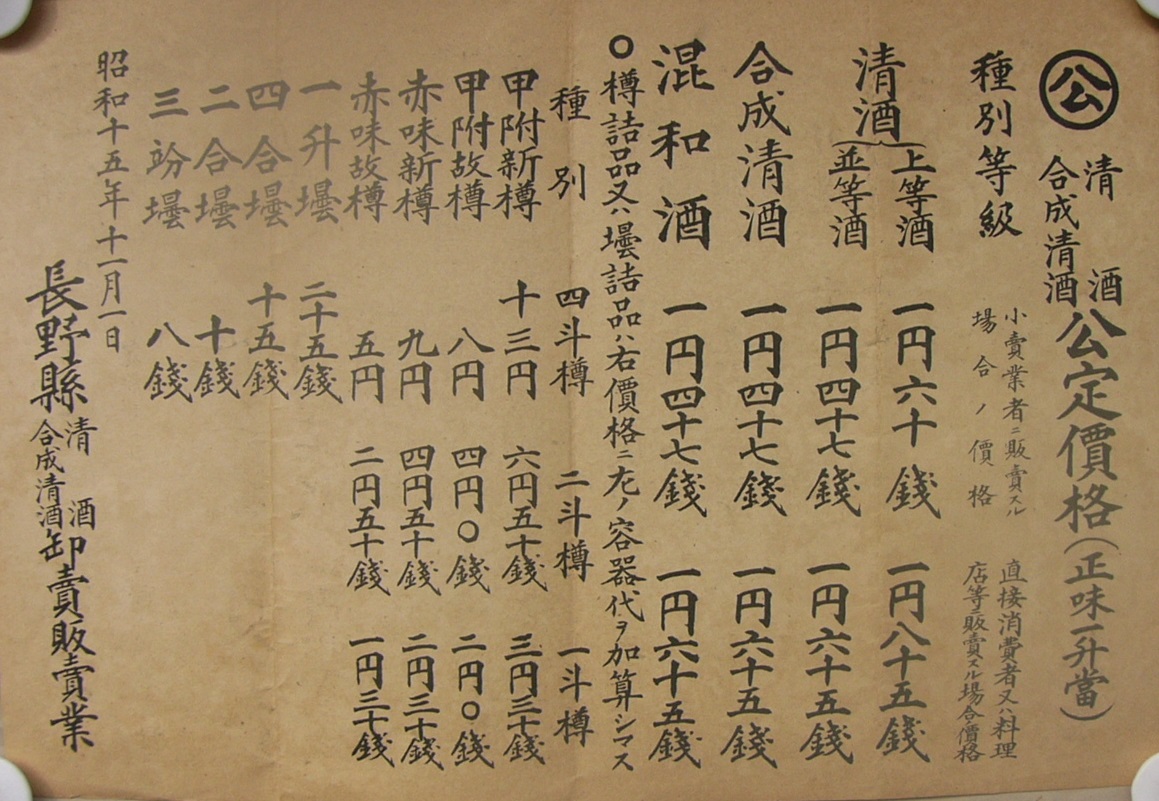 公 清酒 合成清酒 公定價格(正味一升當)
種別等級 小賣業者ニ販賣スル場合ノ價格 直接消費者又ハ料理店等ニ販賣スル場合價格
清酒 上等酒 一円六十錢 一円八十五錢
並等酒 一円四十七錢 一円六十五錢
合成清酒 一円四十七錢 一円六十五錢
混和酒 一円四十七錢 一円六十五錢
○樽詰品又ハ壜詰品ハ右價格ニ左ノ容器代ヲ加算シマス
種別 四斗樽 二斗樽 一斗樽
甲附新樽 十三円 六円五十錢 三円三十錢
甲附故樽 八円 四円〇錢 二円〇錢
赤味新樽 九円 四円五十錢 二円三十錢
赤味故樽 五円 二円五十錢 一円三十錢
一升壜 二十五錢
四合壜 十五錢
二合壜 十錢
三竕壜 八錢
昭和十五年十一月一日
長野縣 清酒 合成清酒 卸賣販賣業